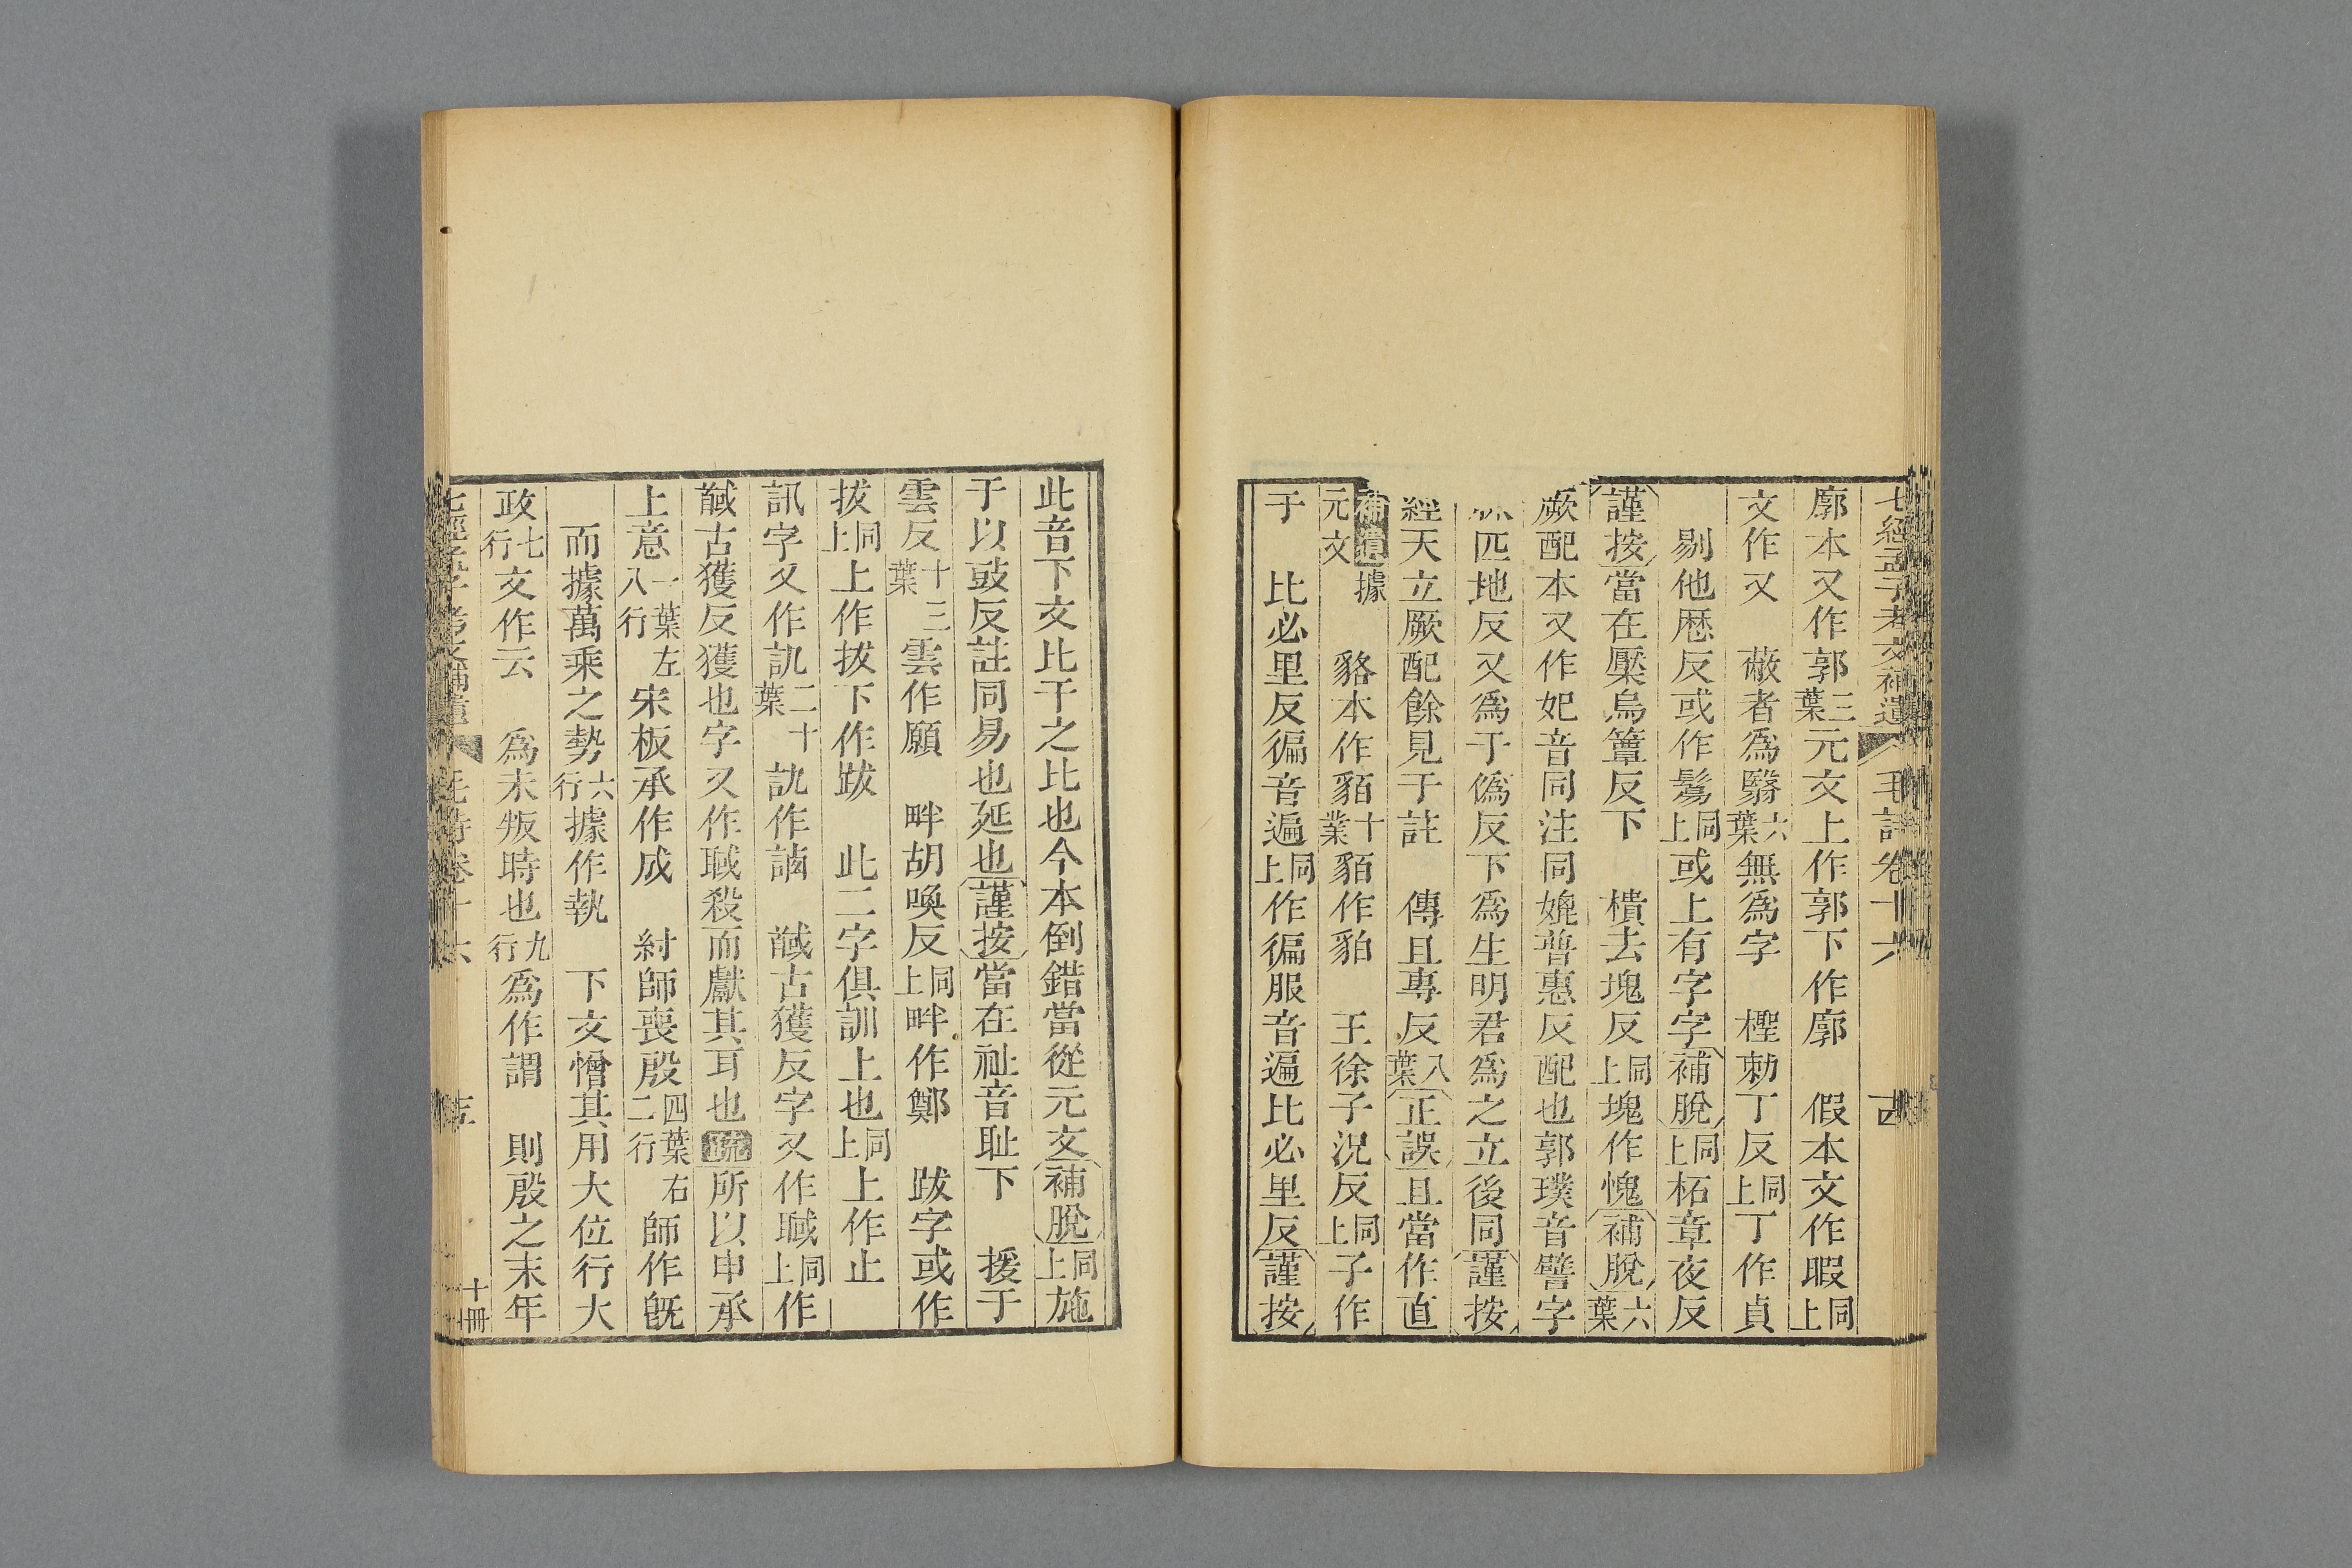 七經孟子考文補遺 毛詩卷十六
廓本又作郭三葉元文上作郭下作廓 假本文作暇同上
文作又 蔽者爲翳六葉無爲字 檉勅丁反同上丁作貞
剔他歷反或作鬄同上或上有字字補脫同上柘章夜反
謹按當在檿烏簟反下 樻去塊反同上塊作愧補脫六葉
厥配本又作妃音同注同媲普惠反配也郭璞音譬字
匹地反又爲于僞反下爲生明君爲之立後同謹按
經天立厥配餘見于註 傳且專反八葉正誤且當作直
補遺據元文 貉本作貊十業貊作貃 王徐子況反同上子作
于 比必里反徧音遍同上作徧服音遍比必里反謹按
此音下文比干之比也今本倒錯當從元文補脫同上施
于以豉反註同易也延也謹按當在祉音耻下 援于
雲反十三葉雲作願 畔胡喚反同上畔作鄭 跋字或作
拔同上上作拔下作跋 此二字俱訓上也同上上作止
訊字又作訅二十葉訅作誦 馘古獲反字又作聝同上作
馘古獲反獲也字又作聝殺而獻其耳也疏所以申承
上意一葉左八行宋板承作成 紂師喪殷四葉右二行師作旣
而據萬乘之勢六行據作執 下文憎其用大位行大
政七行文作云 爲末叛時也九行爲作謂 則殷之末年
七經孟子考文補遺 毛詩卷十六